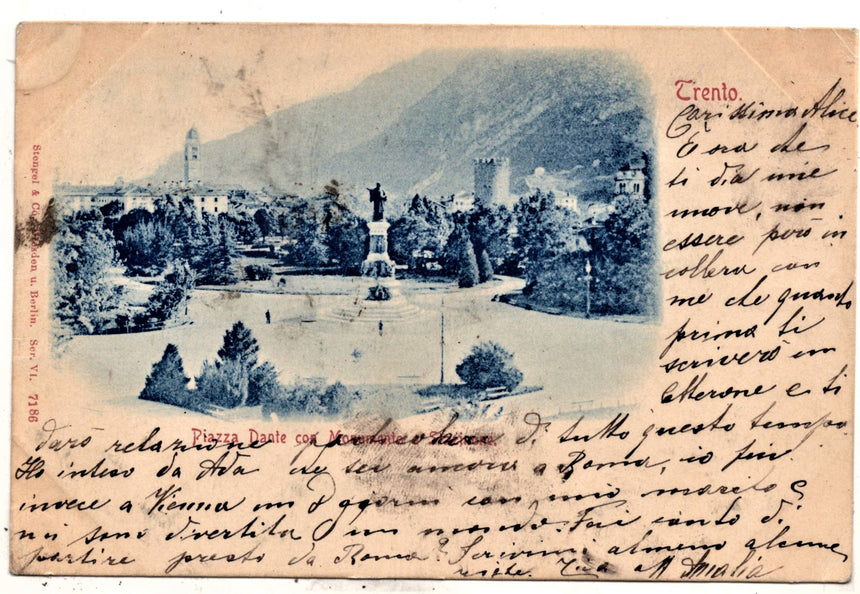 Trento.
Carissima Alice
È ora che
ti dia mie
nuove, non
essere però in
collera con
me che quanto
prima ti
scriverò un
letterone e ti
darò relazione di tutto questo tempo
Ho inteso da Ada che sei ancora a Roma, io fui
invece a Vienna un 8 giorni con mio marito e
mi sono divertita un mondo. Fai conto di
partire presto da Roma? Scrivimi almeno alcune
righe. Tua Amalia
Piazza Dante con Monumento e Stazione
Stengel & Co., Dresden u. Berlin. Ser. VI. 7186